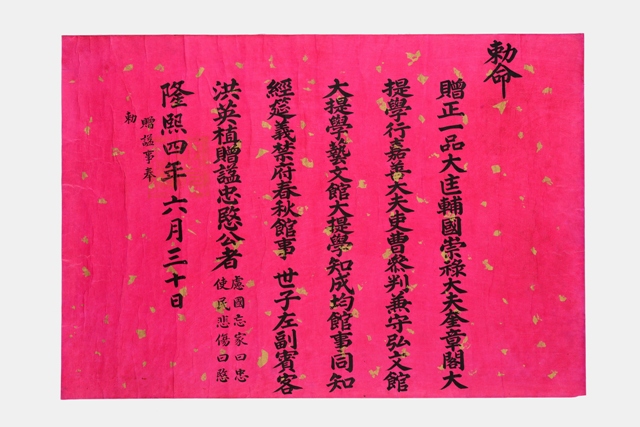 勅命
贈正一品大匡輔國崇祿大夫奎章閣大
提學行嘉善大夫吏曹參判兼守弘文館
大提學藝文館大提學知成均館事同知
經筵義禁府春秋館事 世子左副賓客
洪英植贈諡忠愍公者 慮國忘家曰忠
使民悲傷曰愍
隆熙四年六月三十日
贈諡事奉
勅